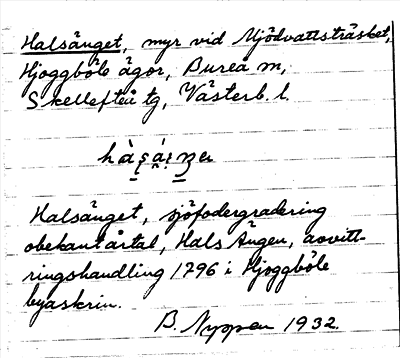 Halsänget, myr vid Mjödvattsträsket,
Hjoggböle ägor, Bureå m,
Skellefteå tg, Västerb. l.
Halsänget, sjöfodergradering
obekant årtal, Hals Ängen, avvitt-
ringshandling 1796 i Hjoggböle
byaskrin.
B. Nyppen 1932.